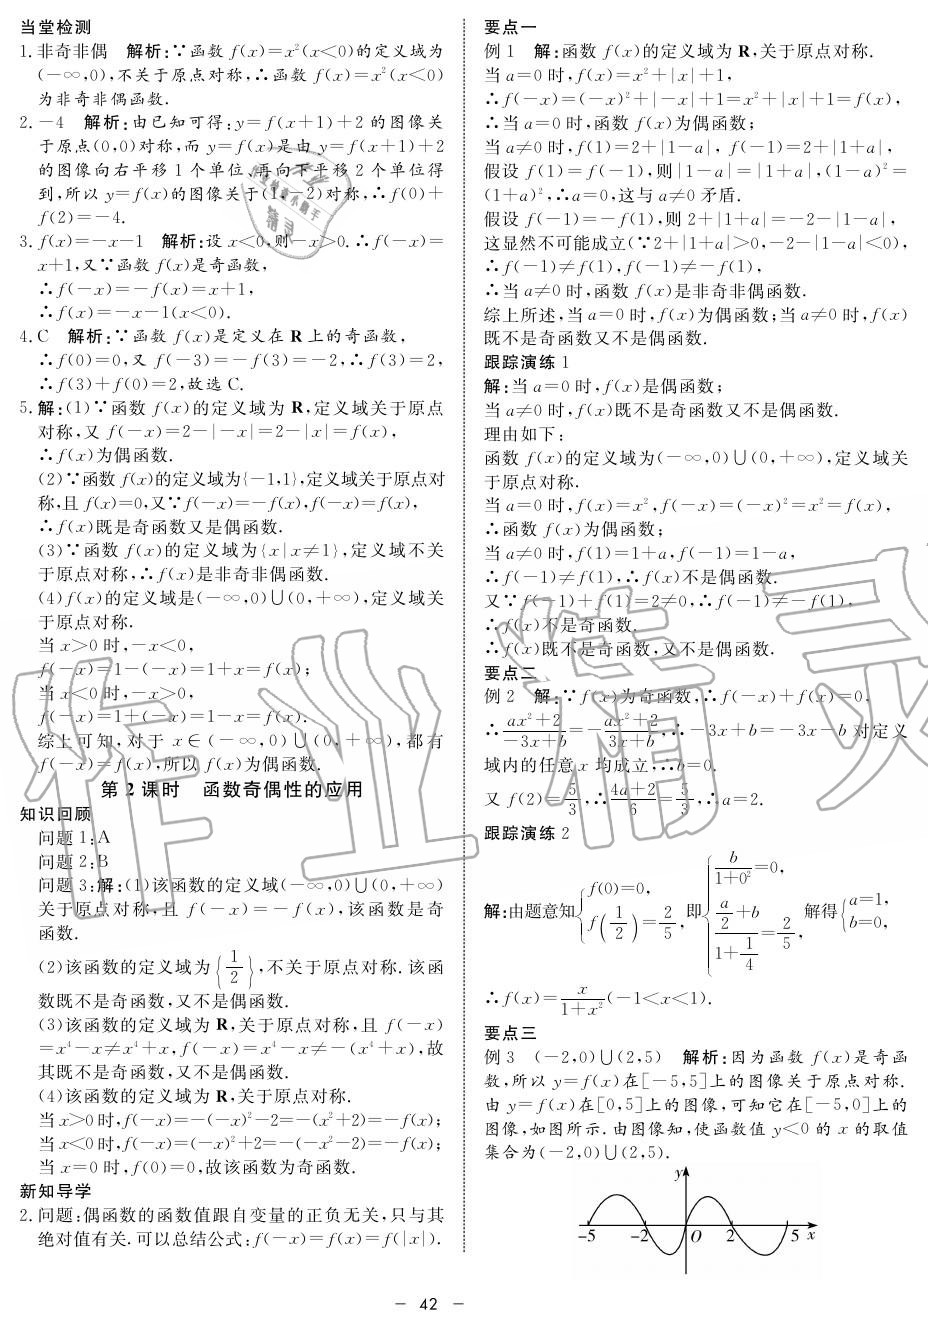 当堂检测
1.非奇非偶 解析:∵函数 f(x)=x²(x<0)的定义域为
(-∞,0),不关于原点对称,∴函数 f(x)=x²(x<0)
为非奇非偶函数.
2.-4 解析:由已知可得:y=f(x+1)+2 的图像关
于原点(0,0)对称,而 y=f(x)是由 y=f(x+1)+2
的图像向右平移 1 个单位、再向下平移 2 个单位得
到,所以 y=f(x)的图像关于(1,-2)对称,∴f(0)+
f(2)=-4.
3.f(x)=-x-1 解析:设 x<0,则-x>0.∴f(-x)=
x+1,又∵函数 f(x)是奇函数,
∴f(-x)=-f(x)=x+1,
∴f(x)=-x-1(x<0).
4.C 解析:∵函数 f(x)是定义在 R 上的奇函数,
∴f(0)=0,又 f(-3)=-f(3)=-2,∴f(3)=2,
∴f(3)+f(0)=2,故选 C.
5.解:(1)∵函数 f(x)的定义域为 R,定义域关于原点
对称,又 f(-x)=2-|-x|=2-|x|=f(x),
∴f(x)为偶函数.
(2)∵函数 f(x)的定义域为{-1,1},定义域关于原点对
称,且 f(x)=0,又∵f(-x)=-f(x),f(-x)=f(x),
∴f(x)既是奇函数又是偶函数.
(3)∵函数 f(x)的定义域为{x|x≠1},定义域不关
于原点对称,∴f(x)是非奇非偶函数.
(4)f(x)的定义域是(-∞,0)∪(0,+∞),定义域关
于原点对称.
当 x>0 时,-x<0,
f(-x)=1-(-x)=1+x=f(x);
当 x<0 时,-x>0,
f(-x)=1+(-x)=1-x=f(x).
综上可知,对于 x∈(-∞,0)∪(0,+∞),都有
f(-x)=f(x),所以 f(x)为偶函数.
第 2 课时 函数奇偶性的应用
知识回顾
问题 1:A
问题 2:B
问题 3:解:(1)该函数的定义域(-∞,0)∪(0,+∞)
关于原点对称,且 f(-x)=-f(x),该函数是奇
函数.
(2)该函数的定义域为{1/2},不关于原点对称.该函
数既不是奇函数,又不是偶函数.
(3)该函数的定义域为 R,关于原点对称,且 f(-x)
=x⁴-x≠x⁴+x,f(-x)=x⁴-x≠-(x⁴+x),故
其既不是奇函数,又不是偶函数.
(4)该函数的定义域为 R,关于原点对称.
当 x>0 时,f(-x)=-(-x)²-2=-(x²+2)=-f(x);
当 x<0 时,f(-x)=(-x)²+2=-(-x²-2)=-f(x);
当 x=0 时,f(0)=0,故该函数为奇函数.
新知导学
2.问题:偶函数的函数值跟自变量的正负无关,只与其
绝对值有关.可以总结公式:f(-x)=f(x)=f(|x|).
要点一
例 1 解:函数 f(x)的定义域为 R,关于原点对称.
当 a=0 时,f(x)=x²+|x|+1,
∴f(-x)=(-x)²+|-x|+1=x²+|x|+1=f(x),
∴当 a=0 时,函数 f(x)为偶函数;
当 a≠0 时,f(1)=2+|1-a|, f(-1)=2+|1+a|,
假设 f(1)=f(-1),则|1-a|=|1+a|,(1-a)²=
(1+a)²,∴a=0,这与 a≠0 矛盾.
假设 f(-1)=-f(1),则 2+|1+a|=-2-|1-a|,
这显然不可能成立(∵2+|1+a|>0,-2-|1-a|<0),
∴f(-1)≠f(1),f(-1)≠-f(1),
∴当 a≠0 时,函数 f(x)是非奇非偶函数.
综上所述,当 a=0 时,f(x)为偶函数;当 a≠0 时,f(x)
既不是奇函数又不是偶函数.
跟踪演练 1
解:当 a=0 时,f(x)是偶函数;
当 a≠0 时,f(x)既不是奇函数又不是偶函数.
理由如下:
函数 f(x)的定义域为(-∞,0)∪(0,+∞),定义域关
于原点对称.
当 a=0 时,f(x)=x²,f(-x)=(-x)²=x²=f(x),
∴函数 f(x)为偶函数;
当 a≠0 时,f(1)=1+a,f(-1)=1-a,
∴f(-1)≠f(1),∴f(x)不是偶函数.
又∵f(-1)+f(1)=2≠0,∴f(-1)≠-f(1),
∴f(x)不是奇函数.
∴f(x)既不是奇函数,又不是偶函数.
要点二
例 2 解:∵f(x)为奇函数,∴f(-x)+f(x)=0.
∴(ax²+2)/(-3x+b)=-(ax²+2)/(3x+b),∴-3x+b=-3x-b 对定义
域内的任意 x 均成立,∴b=0.
又 f(2)=5/3,∴(4a+2)/6=5/3,∴a=2.
跟踪演练 2
解:由题意知{f(0)=0, f(1/2)=2/5, 即{b/(1+0²)=0, (a/2+b)/(1+1/4)=2/5, 解得{a=1, b=0,
∴f(x)=x/(1+x²)(-1<x<1).
要点三
例 3 (-2,0)∪(2,5) 解析:因为函数 f(x)是奇函
数,所以 y=f(x)在[-5,5]上的图像关于原点对称.
由 y=f(x)在[0,5]上的图像,可知它在[-5,0]上的
图像,如图所示.由图像知,使函数值 y<0 的 x 的取值
集合为(-2,0)∪(2,5).
y
-5 -2 O 2 5 x
- 42 -
作业精灵